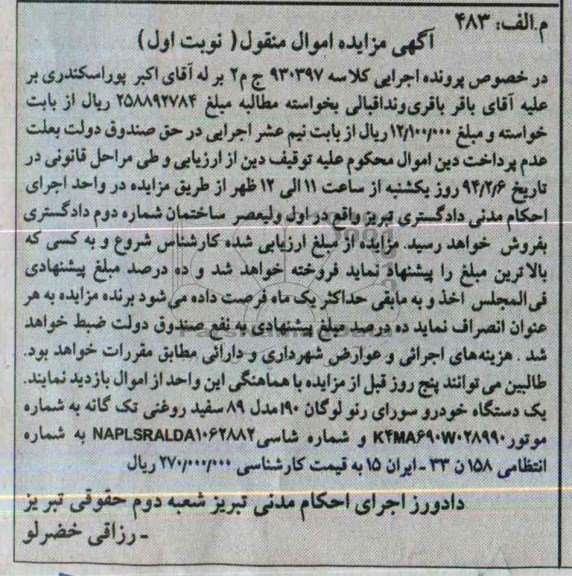 م.الف: ۴۸۳
آگهی مزایده اموال منقول( نوبت اول)
در خصوص پرونده اجرایی کلاسه ۹۳۰۳۹۷ ج م۲ بر له آقای اکبر پوراسکندری بر
علیه آقای باقر باقری‌ونداقبالی بخواسته مطالبه مبلغ ۲۵۸۸۹۲۷۸۴ ریال از بابت
خواسته و مبلغ ۱۲/۱۰۰/۰۰۰ ریال از بابت نیم عشر اجرایی در حق صندوق دولت بعلت
عدم پرداخت دین اموال محکوم علیه توقیف دین از ارزیابی و طی مراحل قانونی در
تاریخ ۹۴/۲/۶ روز یکشنبه از ساعت ۱۱ الی ۱۲ ظهر از طریق مزایده در واحد اجرای
احکام مدنی دادگستری تبریز واقع در اول ولیعصر ساختمان شماره دوم دادگستری
بفروش خواهد رسید. مزایده از مبلغ ارزیابی شده کارشناس شروع و به کسی که
بالاترین مبلغ را پیشنهاد نماید فروخته خواهد شد و ده درصد مبلغ پیشنهادی
فی‌المجلس اخذ و به مابقی حداکثر یک ماه فرصت داده می‌شود برنده مزایده به هر
عنوان انصراف نماید ده درصد مبلغ پیشنهادی به نفع صندوق دولت ضبط خواهد
شد . هزینه‌های اجرائی و عوارض شهرداری و دارائی مطابق مقررات خواهد بود.
طالبین می‌توانند پنج روز قبل از مزایده با هماهنگی این واحد از اموال بازدید نمایند.
یک دستگاه خودرو سورای رنو لوگان ۹۰امدل ۸۹ سفید روغنی تک گانه به شماره
موتور K۴MA۶۹۰W۰۲۸۹۹۰ و شماره شاسی NAPLSRALDA۱۰۶۲۸۸۲ به شماره
انتظامی ۱۵۸ ن ۳۳ - ایران ۱۵ به قیمت کارشناسی ۲۷۰/۰۰۰/۰۰۰ ریال
دادورز اجرای احکام مدنی تبریز شعبه دوم حقوقی تبریز
- رزاقی خضرلو